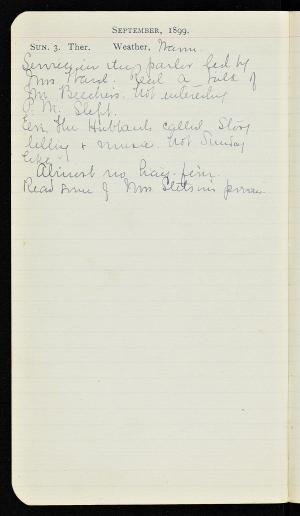 SEPTEMBER, 1899.
SUN. 3. Ther. Weather, Warm.
Services in the parlor led by
Mrs Ward. Read a talk of
Beechers. Not interesting
P. M. Slept.
Eve. The Hubbards called. Story
telling & music. Not Sunday
like.
Almost no hay-fever.
Read some of Mrs Stetsons poems